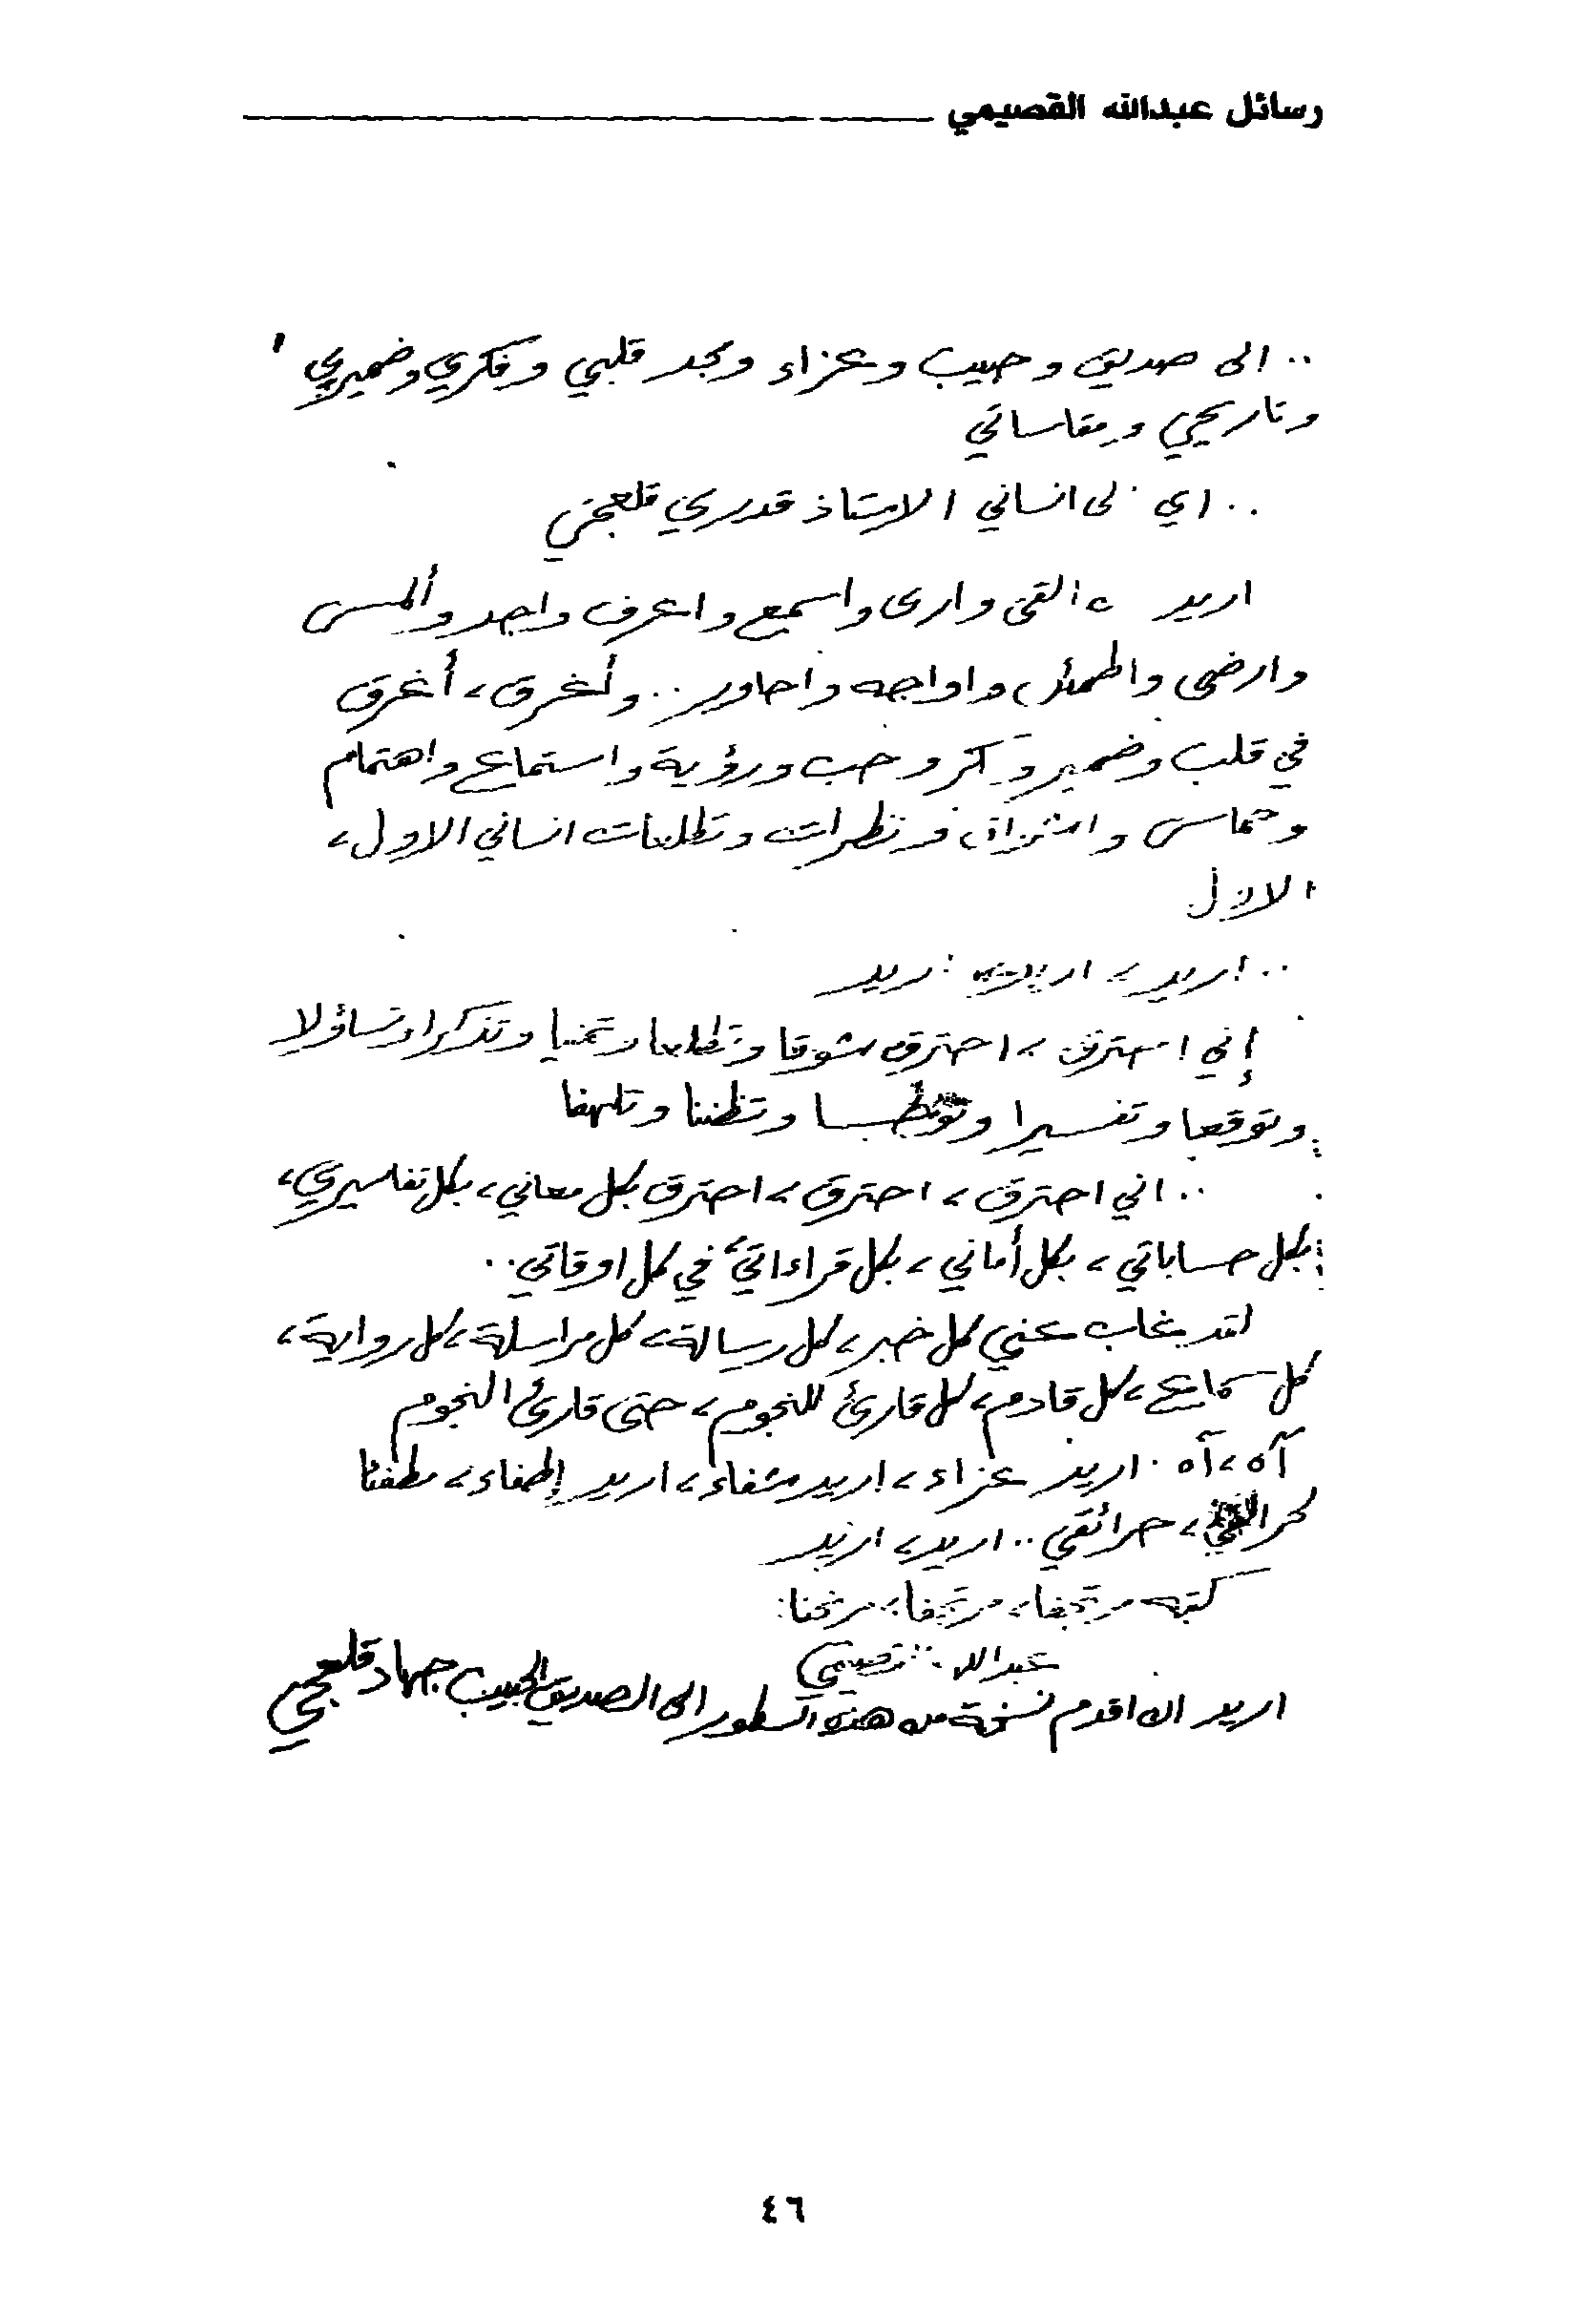 رسائل عبدالله القصيمي
.. الى صديق وحبيب وعزاء ومجد قلبي وفكري وضميري
وتاريخي ومقاساتي
.. اي لى انساني الاستاذ قدري قلعجي
اريد القى وارى واسمع واعرف واجد وألمس
وارضى واطمئن واواجه واحاور .. وأغرق، أغرق
في قلب وضمير وحب ورؤية واستماع واهتمام
وحماس واشراق ونظرات وتطلعات انساني الاول،
الاول
.. اريد، اريد، اريد
إني احترق، احترق شوقا وتطلعا وتمنيا وتذكرا وتساؤلا
وتوقعا وتفسيرا وتظننا وتلهفا
.. اني احترق، احترق، احترق بكل معاني، بكل تفاسيري،
بكل حساباتي، بكل أماني، بكل قراءاتي في كل اوقاتي..
لقد غاب عني كل خبر، كل رسالة، كل مراسلة، كل رواية،
كل سماع، كل قادم، كل قارئ للنجوم، حتى قارئ النجوم
آه، آه. اريد عزاء، اريد شفاء، اريد إطفاء، مطفئا
حرائقي .. اريد، اريد
كتبه مرتجفا، مرتجفا،
عبدالله القصيمي
اريد ان اقدم نسخة من هذه السطور الى الصديق الحبيب جهاد قلعجي
٤٦